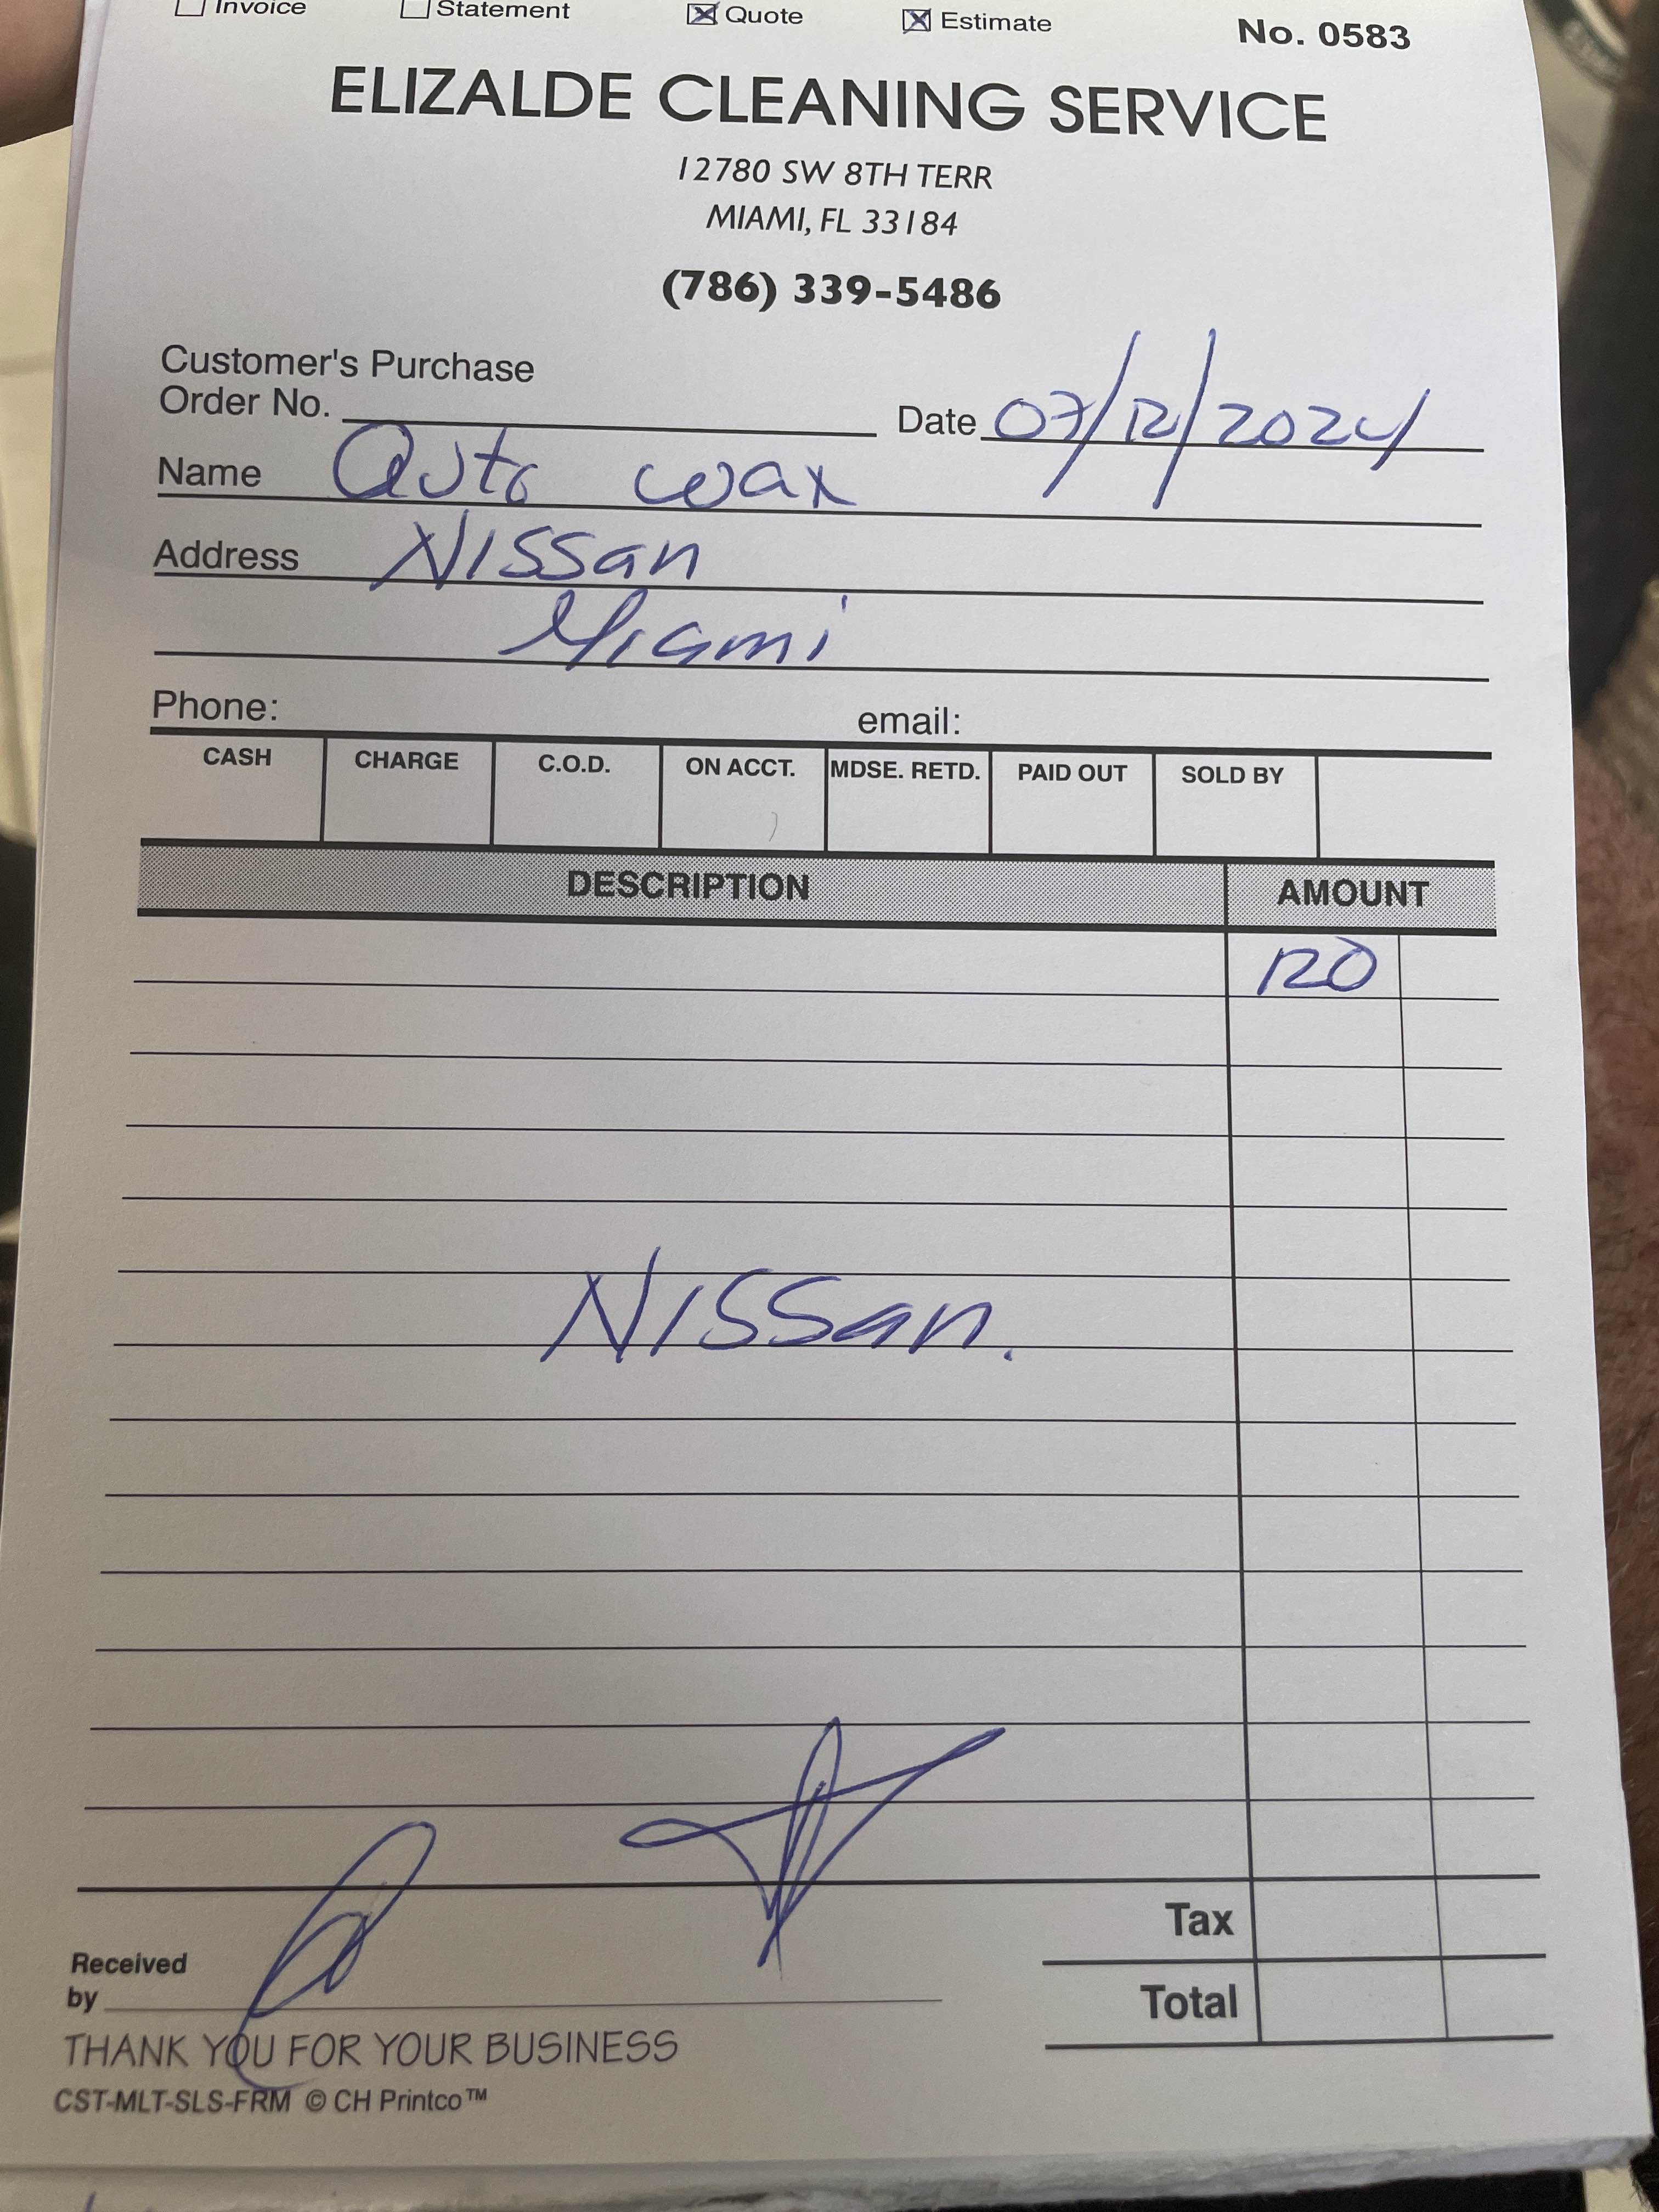 Invoice Statement Quote Estimate No. 0583
ELIZALDE CLEANING SERVICE
12780 SW 8TH TERR
MIAMI, FL 33184
(786) 339-5486
Customer's Purchase
Order No. Date 07/12/2024
Name Auto wax
Address Nissan
Miami
Phone: email:
CASH CHARGE C.O.D. ON ACCT. MDSE. RETD. PAID OUT SOLD BY
DESCRIPTION AMOUNT
120
Nissan.
Tax
Received
by
Total
THANK YOU FOR YOUR BUSINESS
CST-MLT-SLS-FRM © CH Printco™